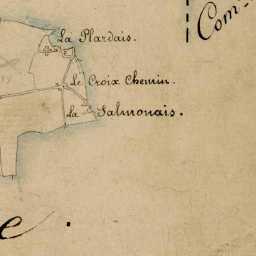 Com
La Plardais.
Le Croix Chemin.
La Salmonais.
e.